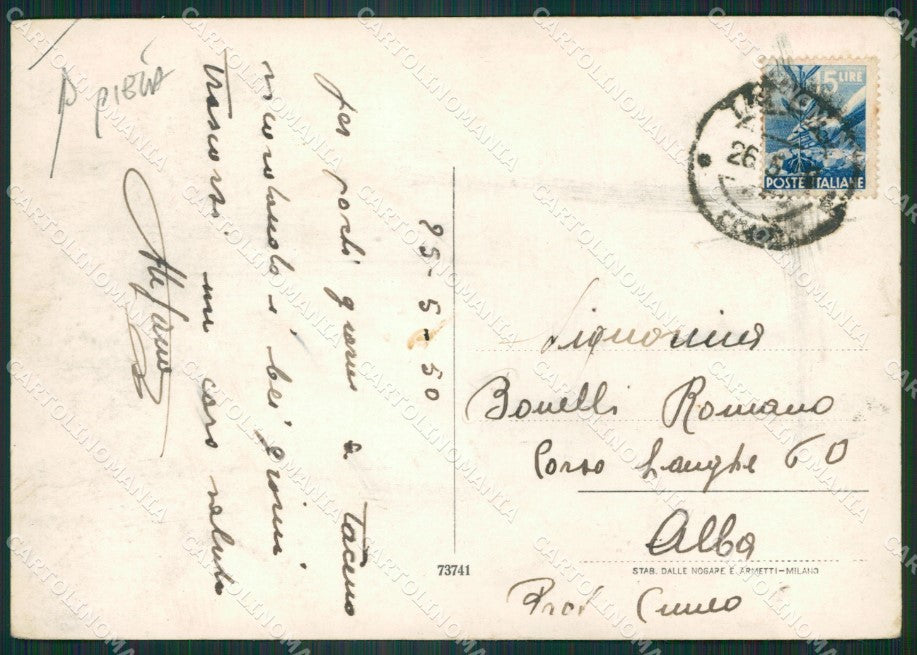 P PIEVA
25-5-50
per pochi giorni a Torino
ricordando i bei giorni
trascorsi un caro saluto
Stefano
15 LIRE
26 5
POSTE ITALIANE
Signorina
Bonelli Romano
Corso Langhe 60
Alba
Prov Cuneo
73741
STAB. DALLE NOGARE E ARMETTI-MILANO
CARTOLINOMANIA